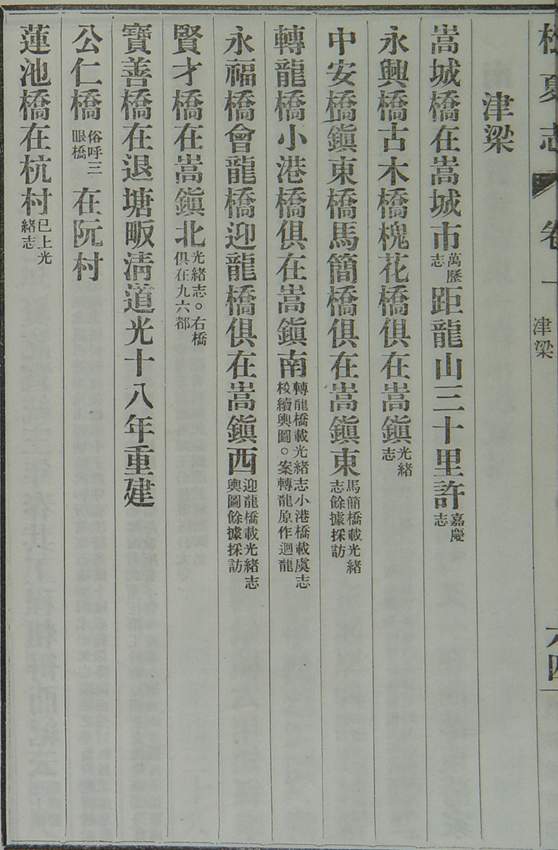 松夏志 卷一 津梁 六四
津梁
嵩城橋在嵩城市萬歷志距龍山三十里許嘉慶志
永興橋古木橋槐花橋俱在嵩鎭光緒志
中安橋鎭東橋馬簡橋俱在嵩鎭東馬簡橋載光緒志餘據採訪
轉龍橋小港橋俱在嵩鎭南轉龍橋載光緒志小港橋載虞志校續輿圖。案轉龍原作迴龍
永福橋會龍橋迎龍橋俱在嵩鎭西迎龍橋載光緒志輿圖餘據採訪
賢才橋在嵩鎭北光緒志。右橋俱在九六都
寶善橋在退塘畈淸道光十八年重建
公仁橋俗呼三眼橋在阮村
蓮池橋在杭村已上光緒志